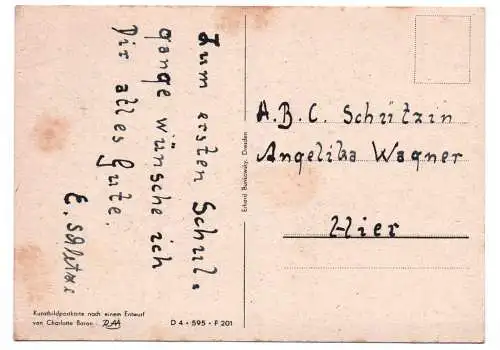 Zum ersten Schul-
gange wünsche ich
Dir alles Gute.
A.B.C. Schützin
Angelika Wagner
Hier
Erhard Bunkowsky, Dresden
Kunstbildpostkarte nach einem Entwurf
von Charlotte Baron
D 4 • 595 • F 201